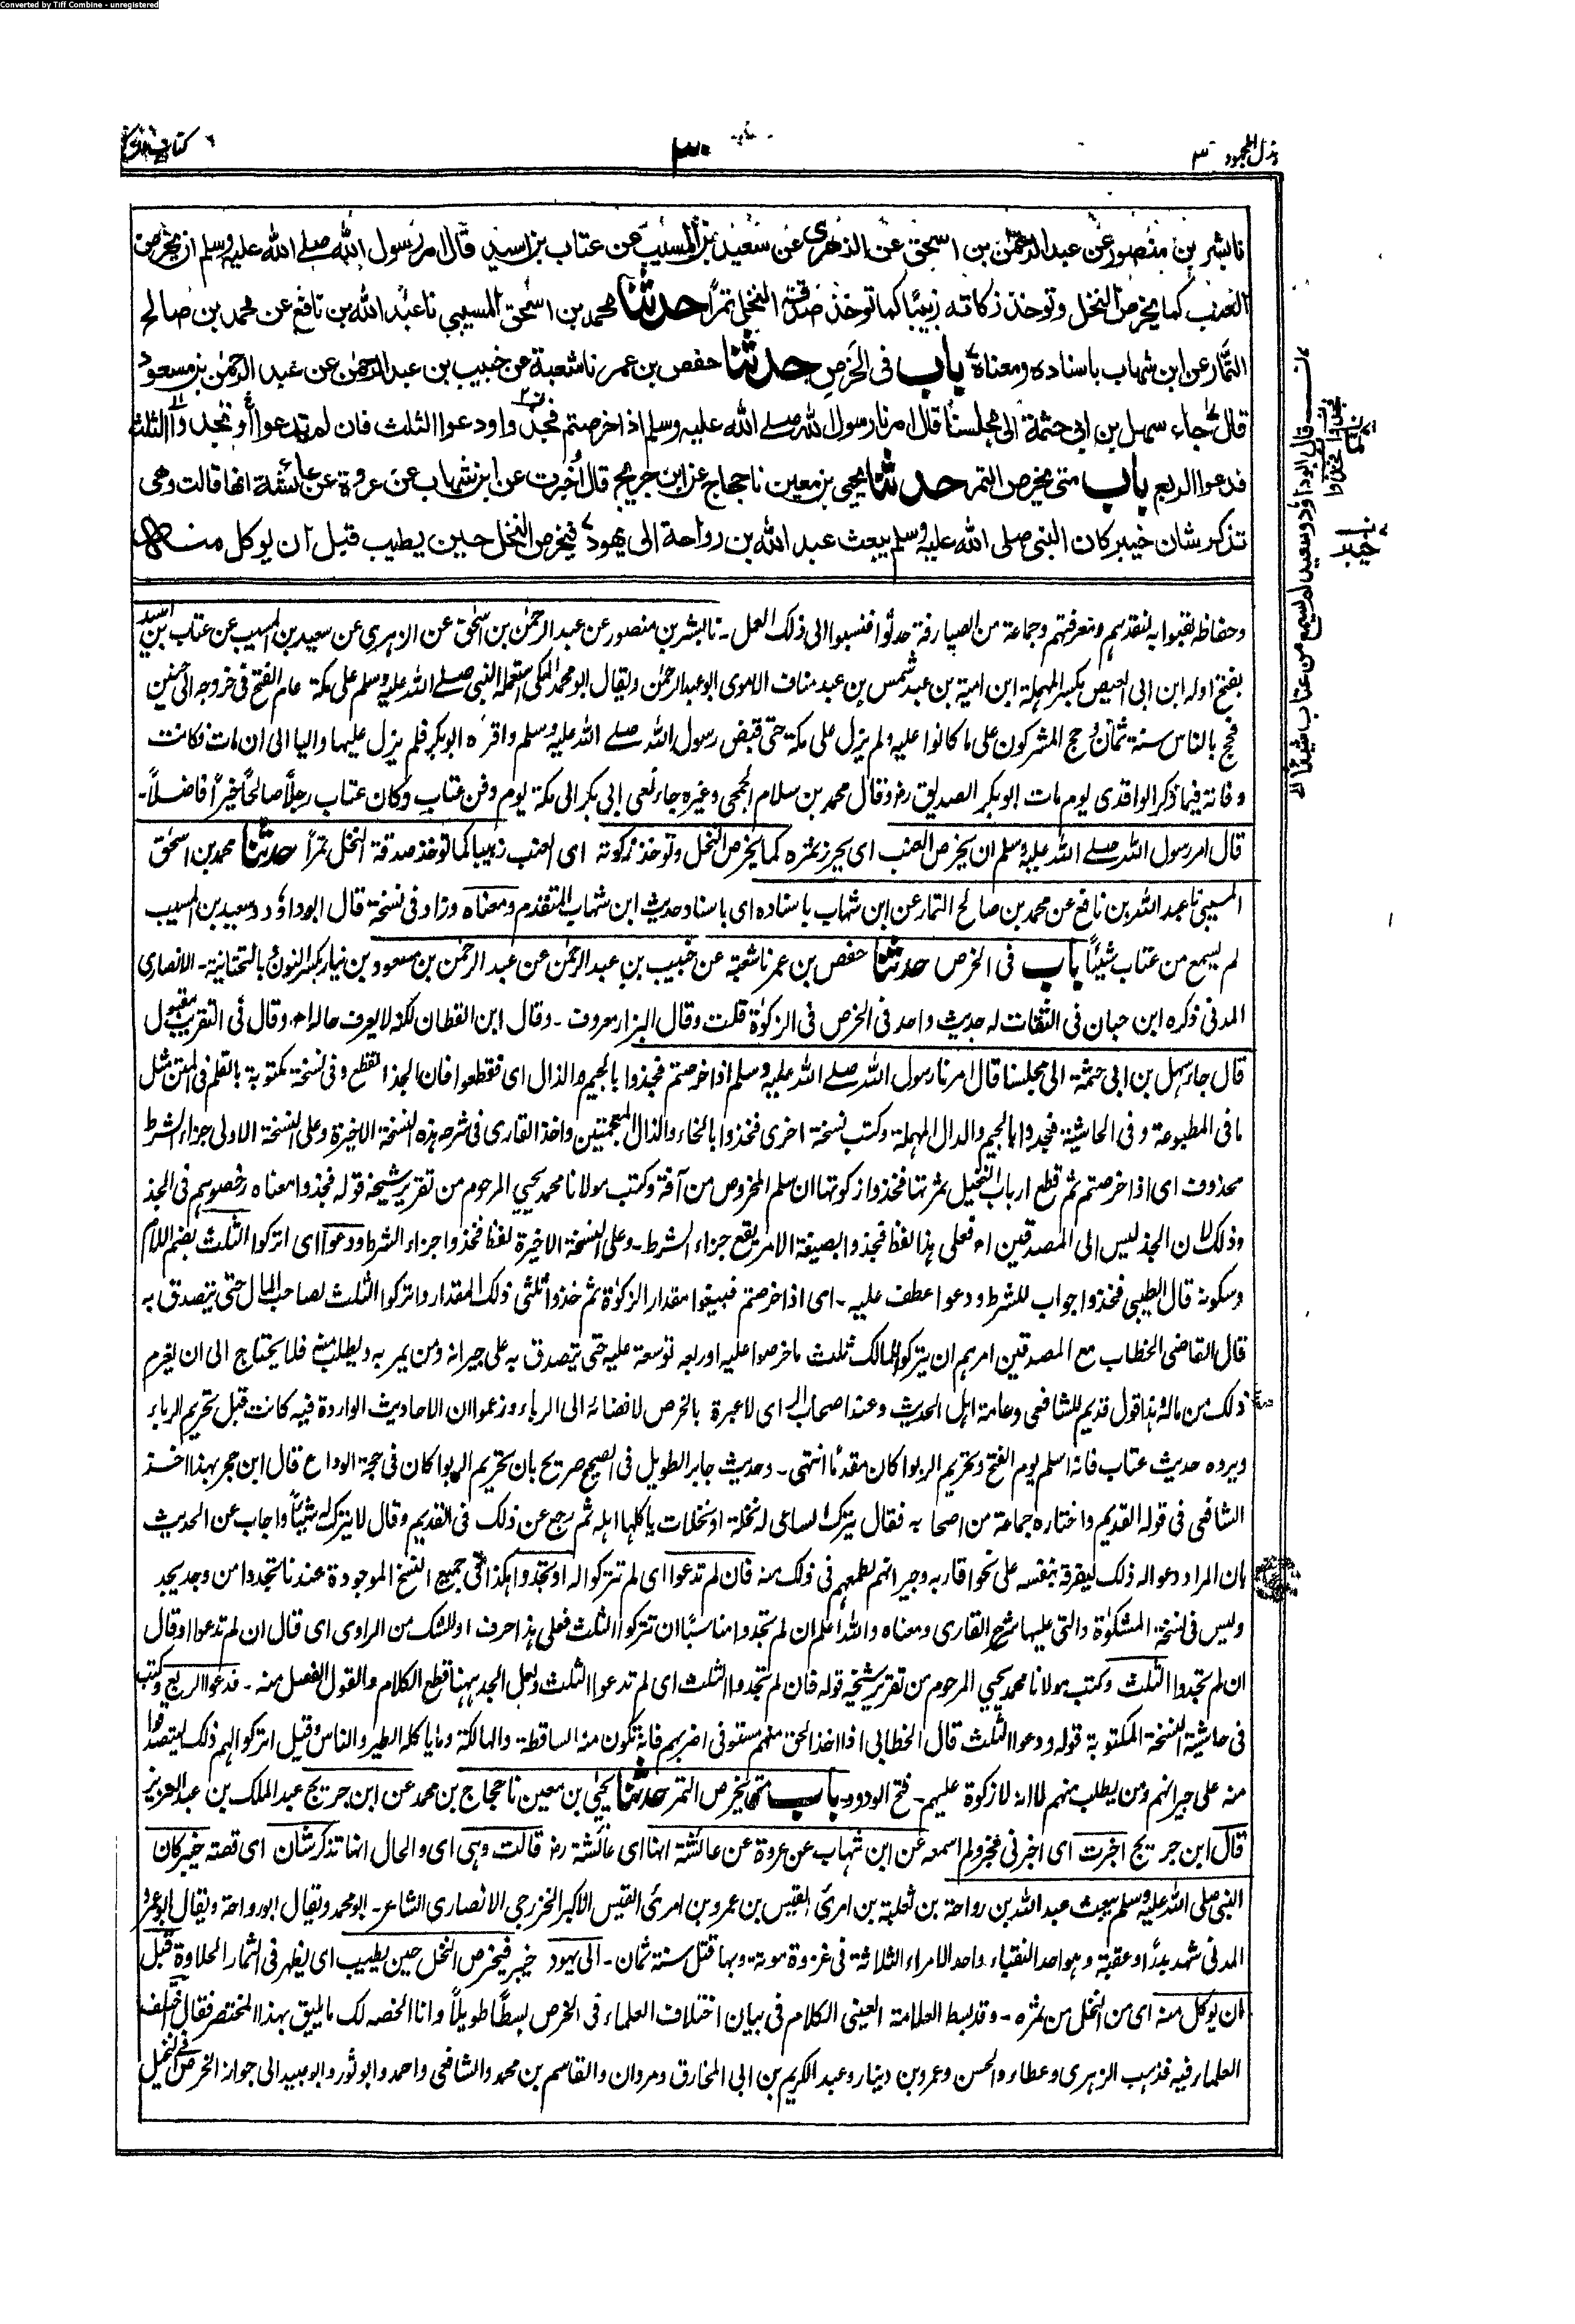 Converted by Tiff Combine - unregistered
بذل المجهود ٣
٣٠
كتاب الزكاة
نا بشر بن منصور عن عبد الرحمن بن اسحق عن الزهرى عن سعيد بن المسيب عن عتاب بن اسيد قال امر رسول الله صلے الله عليه وسلم ان يخرص
العنب كما يخرص النخل وتوخذ زكاته زبيبا كما توخذ صدقة النخل تمرا حدثنا محمد بن اسحق المسيبي نا عبد الله بن نافع عن محمد بن صالح
التمار عن ابن شهاب باسناده ومعناه باب فى الخرص حدثنا حفص بن عمر نا شعبة عن خبيب بن عبد الرحمن عن عبد الرحمن بن مسعود
قال جاء سهل بن ابى حثمة الى مجلسنا قال امرنا رسول الله صلے الله عليه وسلم اذا خرصتم فجذوا ودعوا الثلث فان لم تدعوا او تجدوا الثلث
فدعوا الربع باب متى يخرص التمر حدثنا يحيى بن معين نا حجاج عن ابن جريج قال اخبرت عن ابن شهاب عن عروة عن عائشة انها قالت وهى
تذكر شان خيبر كان النبى صلى الله عليه وسلم يبعث عبد الله بن رواحة الى يهود فيخرص النخل حين يطيب قبل ان يوكل منه
قال ابو داود وسعيد لم يسمع من عتاب شيئا
وحفاظه لقبوا به لنقدهم ومعرفتهم وجماعة من الصيارفة حدثوا فنسبوا الى ذلك العمل - نا بشر بن منصور عن عبد الرحمن بن اسحق عن الزهرى عن سعيد بن المسيب عن عتاب بن اسيد
بفتح اوله ابن ابى العيص بكسر المهملة ابن امية بن عبد شمس بن عبد مناف الاموى ابو عبد الرحمن ويقال ابو محمد المكى استعمله النبى صلے الله عليه وسلم على مكة عام الفتح فى خروجه الى حنين
فحج بالناس سنة ثمان وحج المشركون على ما كانوا عليه ولم يزل على مكة حتى قبض رسول الله صلے الله عليه وسلم واقره ابو بكر فلم يزل عليها واليا الى ان مات فكانت
وفاته فيما ذكر الواقدى يوم مات ابو بكر الصديق رض وقال محمد بن سلام الجمحى وغيره جاء نعى ابى بكر الى مكة يوم دفن عتاب وكان عتاب رجلا صالحا خيرا فاضلا-
قال امر رسول الله صلے الله عليه وسلم ان يخرص العنب اى يحرز ثمره كما يخرص النخل وتوخذ زكوته اى العنب زبيبا كما توخذ صدقة النخل تمرا حدثنا محمد بن اسحق
المسيبى نا عبد الله بن نافع عن محمد بن صالح التمار عن ابن شهاب باسناده اى باسناد حديث ابن شهاب المتقدم ومعناه وزاد فى نسخة قال ابو داؤد وسعيد بن المسيب
لم يسمع من عتاب شيئا باب فى الخرص حدثنا حفص بن عمر نا شعبة عن خبيب بن عبد الرحمن عن عبد الرحمن بن مسعود بن نيار بكسر النون بالتحتانية - الانصارى
المدنى ذكره ابن حبان فى الثقات له حديث واحد فى الخرص فى الزكوة قلت وقال البزار معروف - وقال ابن القطان لكنه لا يعرف حاله اه وقال فى التقريب مقبول
قال جاء سهل بن ابى حثمة الى مجلسنا قال امرنا رسول الله صلے الله عليه وسلم اذا خرصتم فجذوا بالجيم والذال اى فقطعوا فان الجذ القطع وفى نسخة مكتوبة بالقلم فى المتن مثل
ما فى المطبوعة وفى الحاشية فجدوا بالجيم والدال المهملة وكتب نسخة اخرى فخذوا بالخاء والذال المعجمتين واخذ القارى فى شرحه هذه النسخة الاخيرة وعلى النسخة الاولى جزاء الشرط
محذوف اى اذا خرصتم ثم قطع ارباب النخيل ثمرتها فخذوا زكوتها ان سلم المخروص من آفة وكتب مولانا محمد يحيى المرحوم من تقرير شيخه قوله فجذوا معناه رخصوهم فى الجذ
وذلك لان الجذ ليس الى المصدقين اه فعلى هذا لفظ فجذوا بصيغة الامر يقع جزاء الشرط - وعلى النسخة الاخيرة لفظ فخذوا جزاء الشرط ودعوا اى اتركوا الثلث بضم اللام
وسكونه قال الطيبى فخذوا جواب للشرط ودعوا عطف عليه - اى اذا خرصتم فبينوا مقدار الزكوة ثم خذوا ثلثى ذلك المقدار واتركوا الثلث لصاحب المال حتى يتصدق به
قال القاضى الخطاب مع المصدقين امرهم ان يتركوا للمالك ثلث ما خرصوا عليه او ربعه توسعة عليه حتى يتصدق به على جيرانه ومن يمر به ويطلب منه فلا يحتاج الى ان يغرم
ذلك من ماله وهذا قول قديم للشافعى وعامة اهل الحديث وعند اصحاب الراى لا عبرة بالخرص لافضائه الى الرباء وزعموا ان الاحاديث الواردة فيه كانت قبل تحريم الرباء
ويرده حديث عتاب فانه اسلم يوم الفتح وتحريم الربوا كان مقدما انتهى - وحديث جابر الطويل فى الصحيح صريح بان تحريم الربوا كان فى حجة الوداع قال ابن حجر بهذا اخذ
الشافعى فى قوله القديم واختاره جماعة من اصحابه فقال يترك الساعى له نخلة او نخلات ياكلها اهله ثم رجع عن ذلك فى القديم وقال لا يترك له شيئا واجاب عن الحديث
بان المراد دعوا له ذلك ليفرقه بنفسه على نحو اقاربه وجيرانهم لطمعهم فى ذلك منه فان لم تدعوا اى لم تتركوا له او تجدوا هكذا فى جميع النسخ الموجودة عندنا تجدوا من وجد يجد
وليس فى نسخة المشكوة والتى عليها شرح القارى ومعناه والله اعلم ان لم تجدوا مناسبا ان تتركوا الثلث فعلى هذا حرف او للشك من الراوى اى قال ان لم تدعوا او قال
ان لم تجدوا الثلث وكتب مولانا محمد يحيى المرحوم من تقرير شيخه قوله فان لم تجدوا الثلث اى لم تدعوا الثلث ولعل الجد ههنا قطع الكلام والقول الفصل منه - فدعوا الربع وكتب
فى حاشية النسخة المكتوبة قوله ودعوا الثلث قال الخطابى اذا اخذ الحق منهم مستوفى اضر بهم فانه تكون منه الساقطة والهالكة وما ياكله الطير والناس وقيل اتركوا لهم ذلك ليتصدقوا
منه على جيرانهم ومن يطلب منهم لا انه لا زكوة عليهم - فتح الودود - باب متى يخرص التمر حدثنا يحيى بن معين نا حجاج بن محمد عن ابن جريج عبد الملك بن عبد العزيز
قال ابن جريج اخبرت اى اخبرنى مخبر ولم اسمعه عن ابن شهاب عن عروة عن عائشة انها اى عائشة رض قالت وهى اى والحال انها تذكر شان اى قصة خيبر كان
النبى صلى الله عليه وسلم يبعث عبد الله بن رواحة بن ثعلبة بن امرئ القيس بن عمرو بن امرئ القيس الاكبر الخزرجى الانصارى الشاعر - ابو محمد ويقال ابو رواحة ويقال ابو عمرو
المدنى شهد بدرا وعقبة وهو احد النقباء واحد الامراء الثلاثة فى غزوة موتة وبها قتل سنة ثمان - الى يهود خيبر فيخرص النخل حين يطيب اى يظهر فى الثمار الحلاوة قبل
ان يوكل منه اى من النخل من ثمره - وقد بسط العلامة العينى الكلام فى بيان اختلاف العلماء فى الخرص بسطا طويلا وانا الخصه لك ما يليق بهذا المختصر فقال اختلف
العلماء فيه فذهب الزهرى وعطاء والحسن وعمرو بن دينار وعبد الكريم بن ابى المخارق ومروان والقاسم بن محمد والشافعى واحمد وابو ثور وابو عبيد الى جواز الخرص فى النخيل